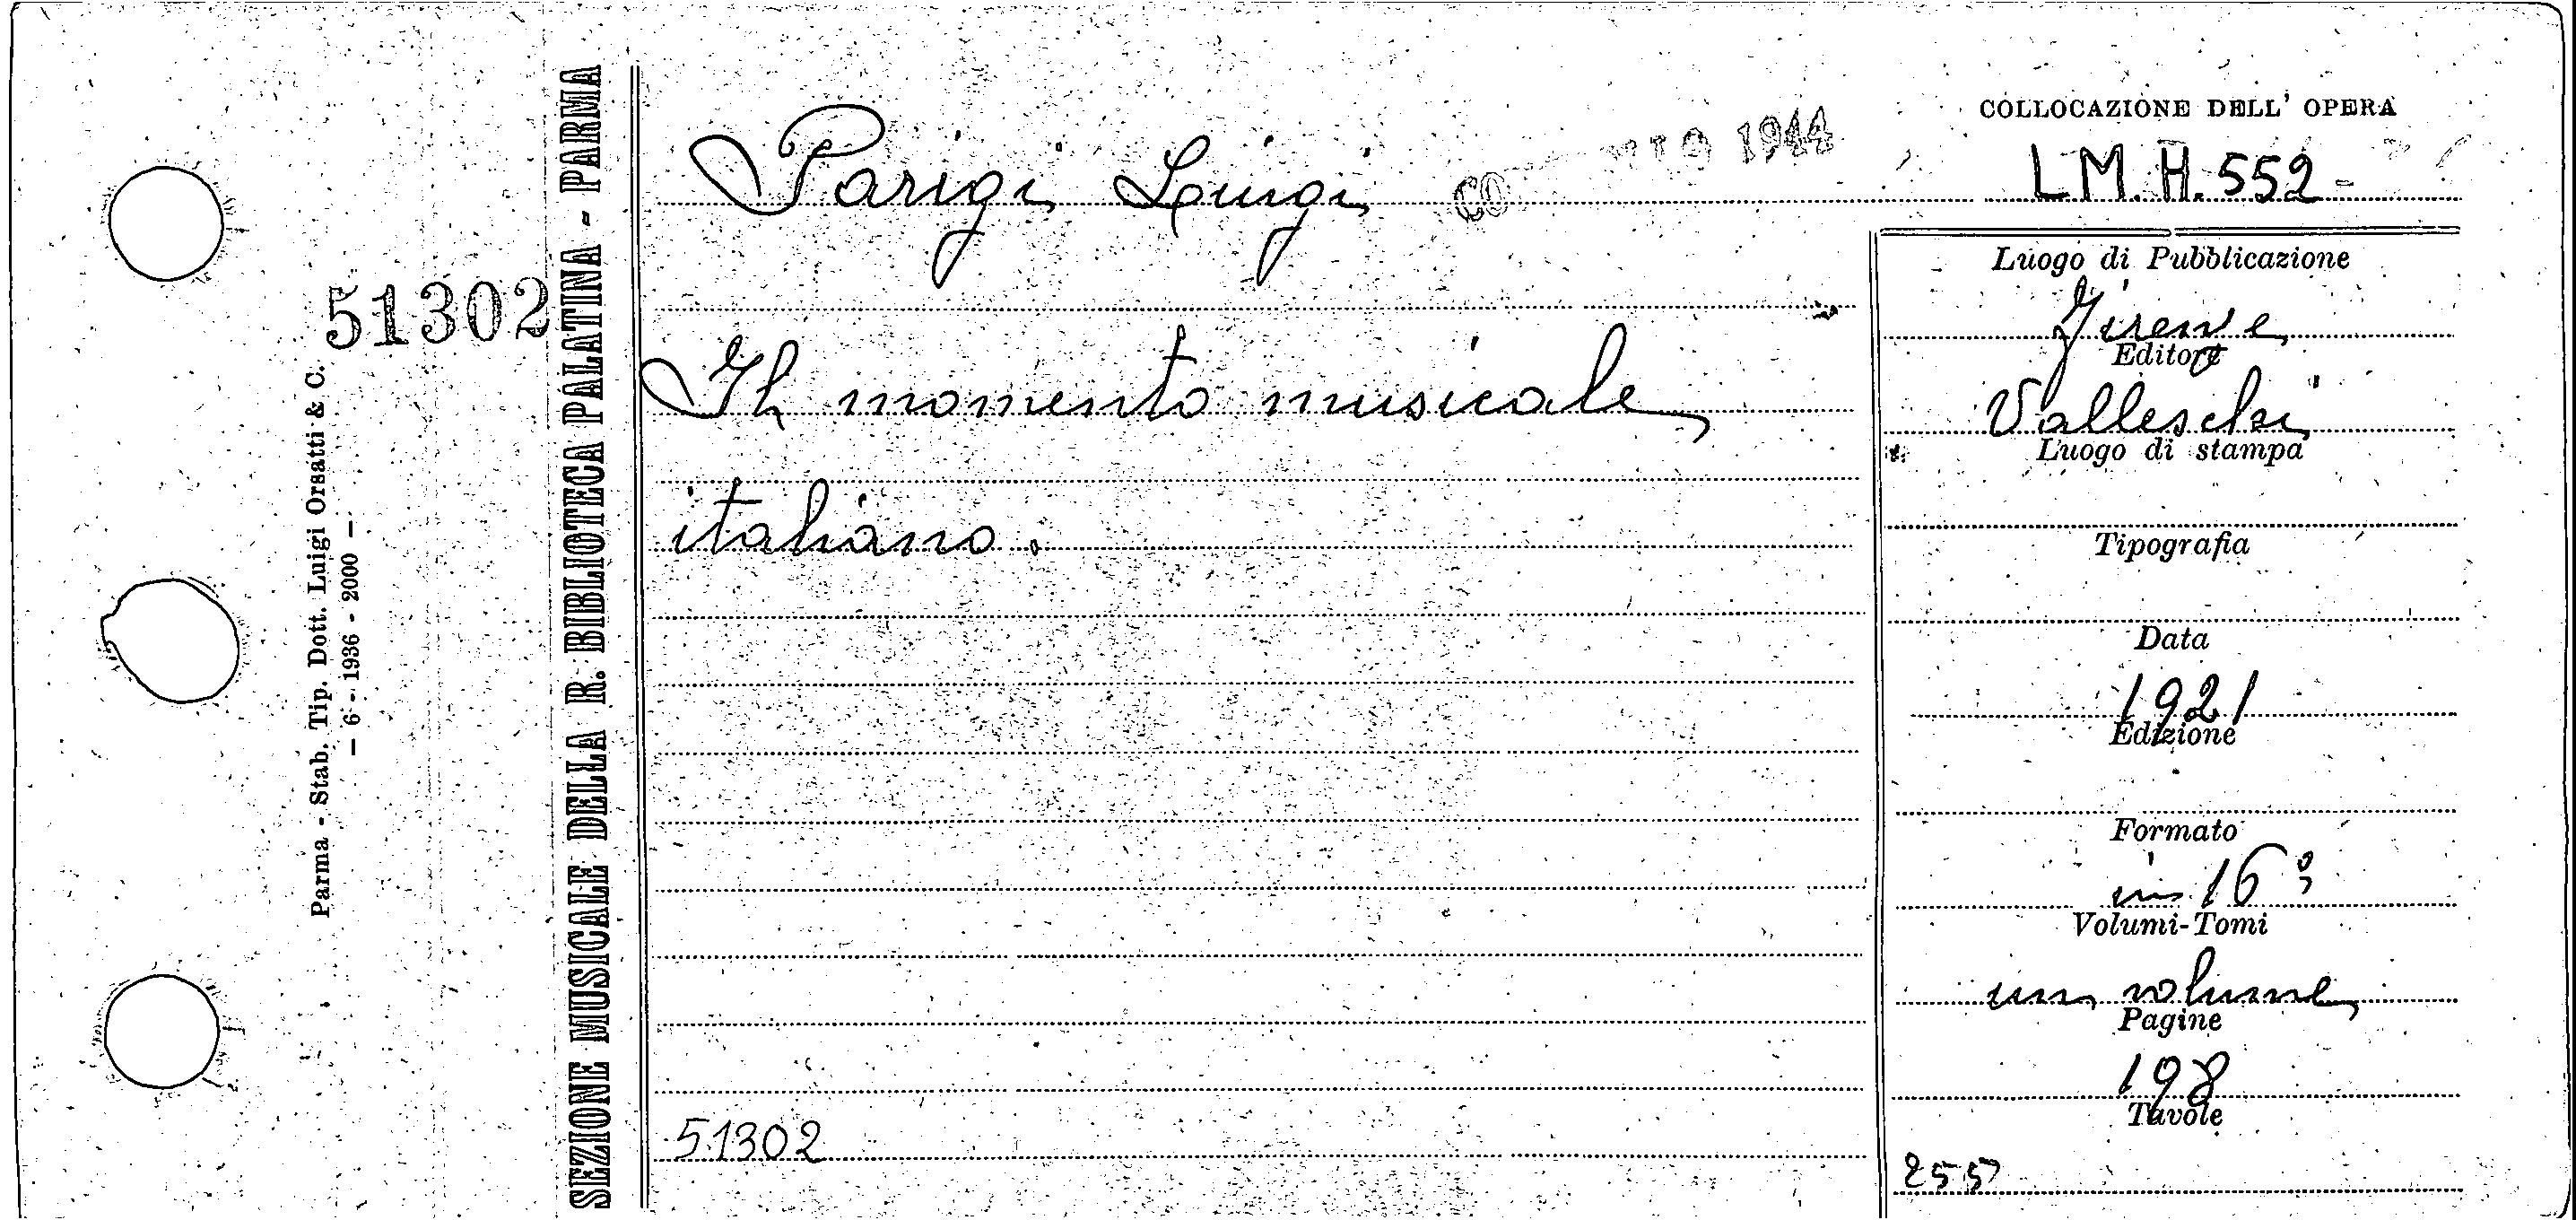 COLLOCAZIONE DELL' OPERA
Parigi Luigi
1944
L M. H. 552
51302
Parma - Stab. Tip. Dott. Luigi Orsatti & C.
- 6 - 1936 - 2000 -
SEZIONE MUSICALE DELLA R. BIBLIOTECA PALATINA - PARMA
Il momento musicale
italiano.
51302
Luogo di Pubblicazione
Firenze
Editore
Valleschi
Luogo di stampa
Tipografia
Data
1921
Edizione
Formato
in 16º
Volumi-Tomi
un volume
Pagine
198
Tavole
255